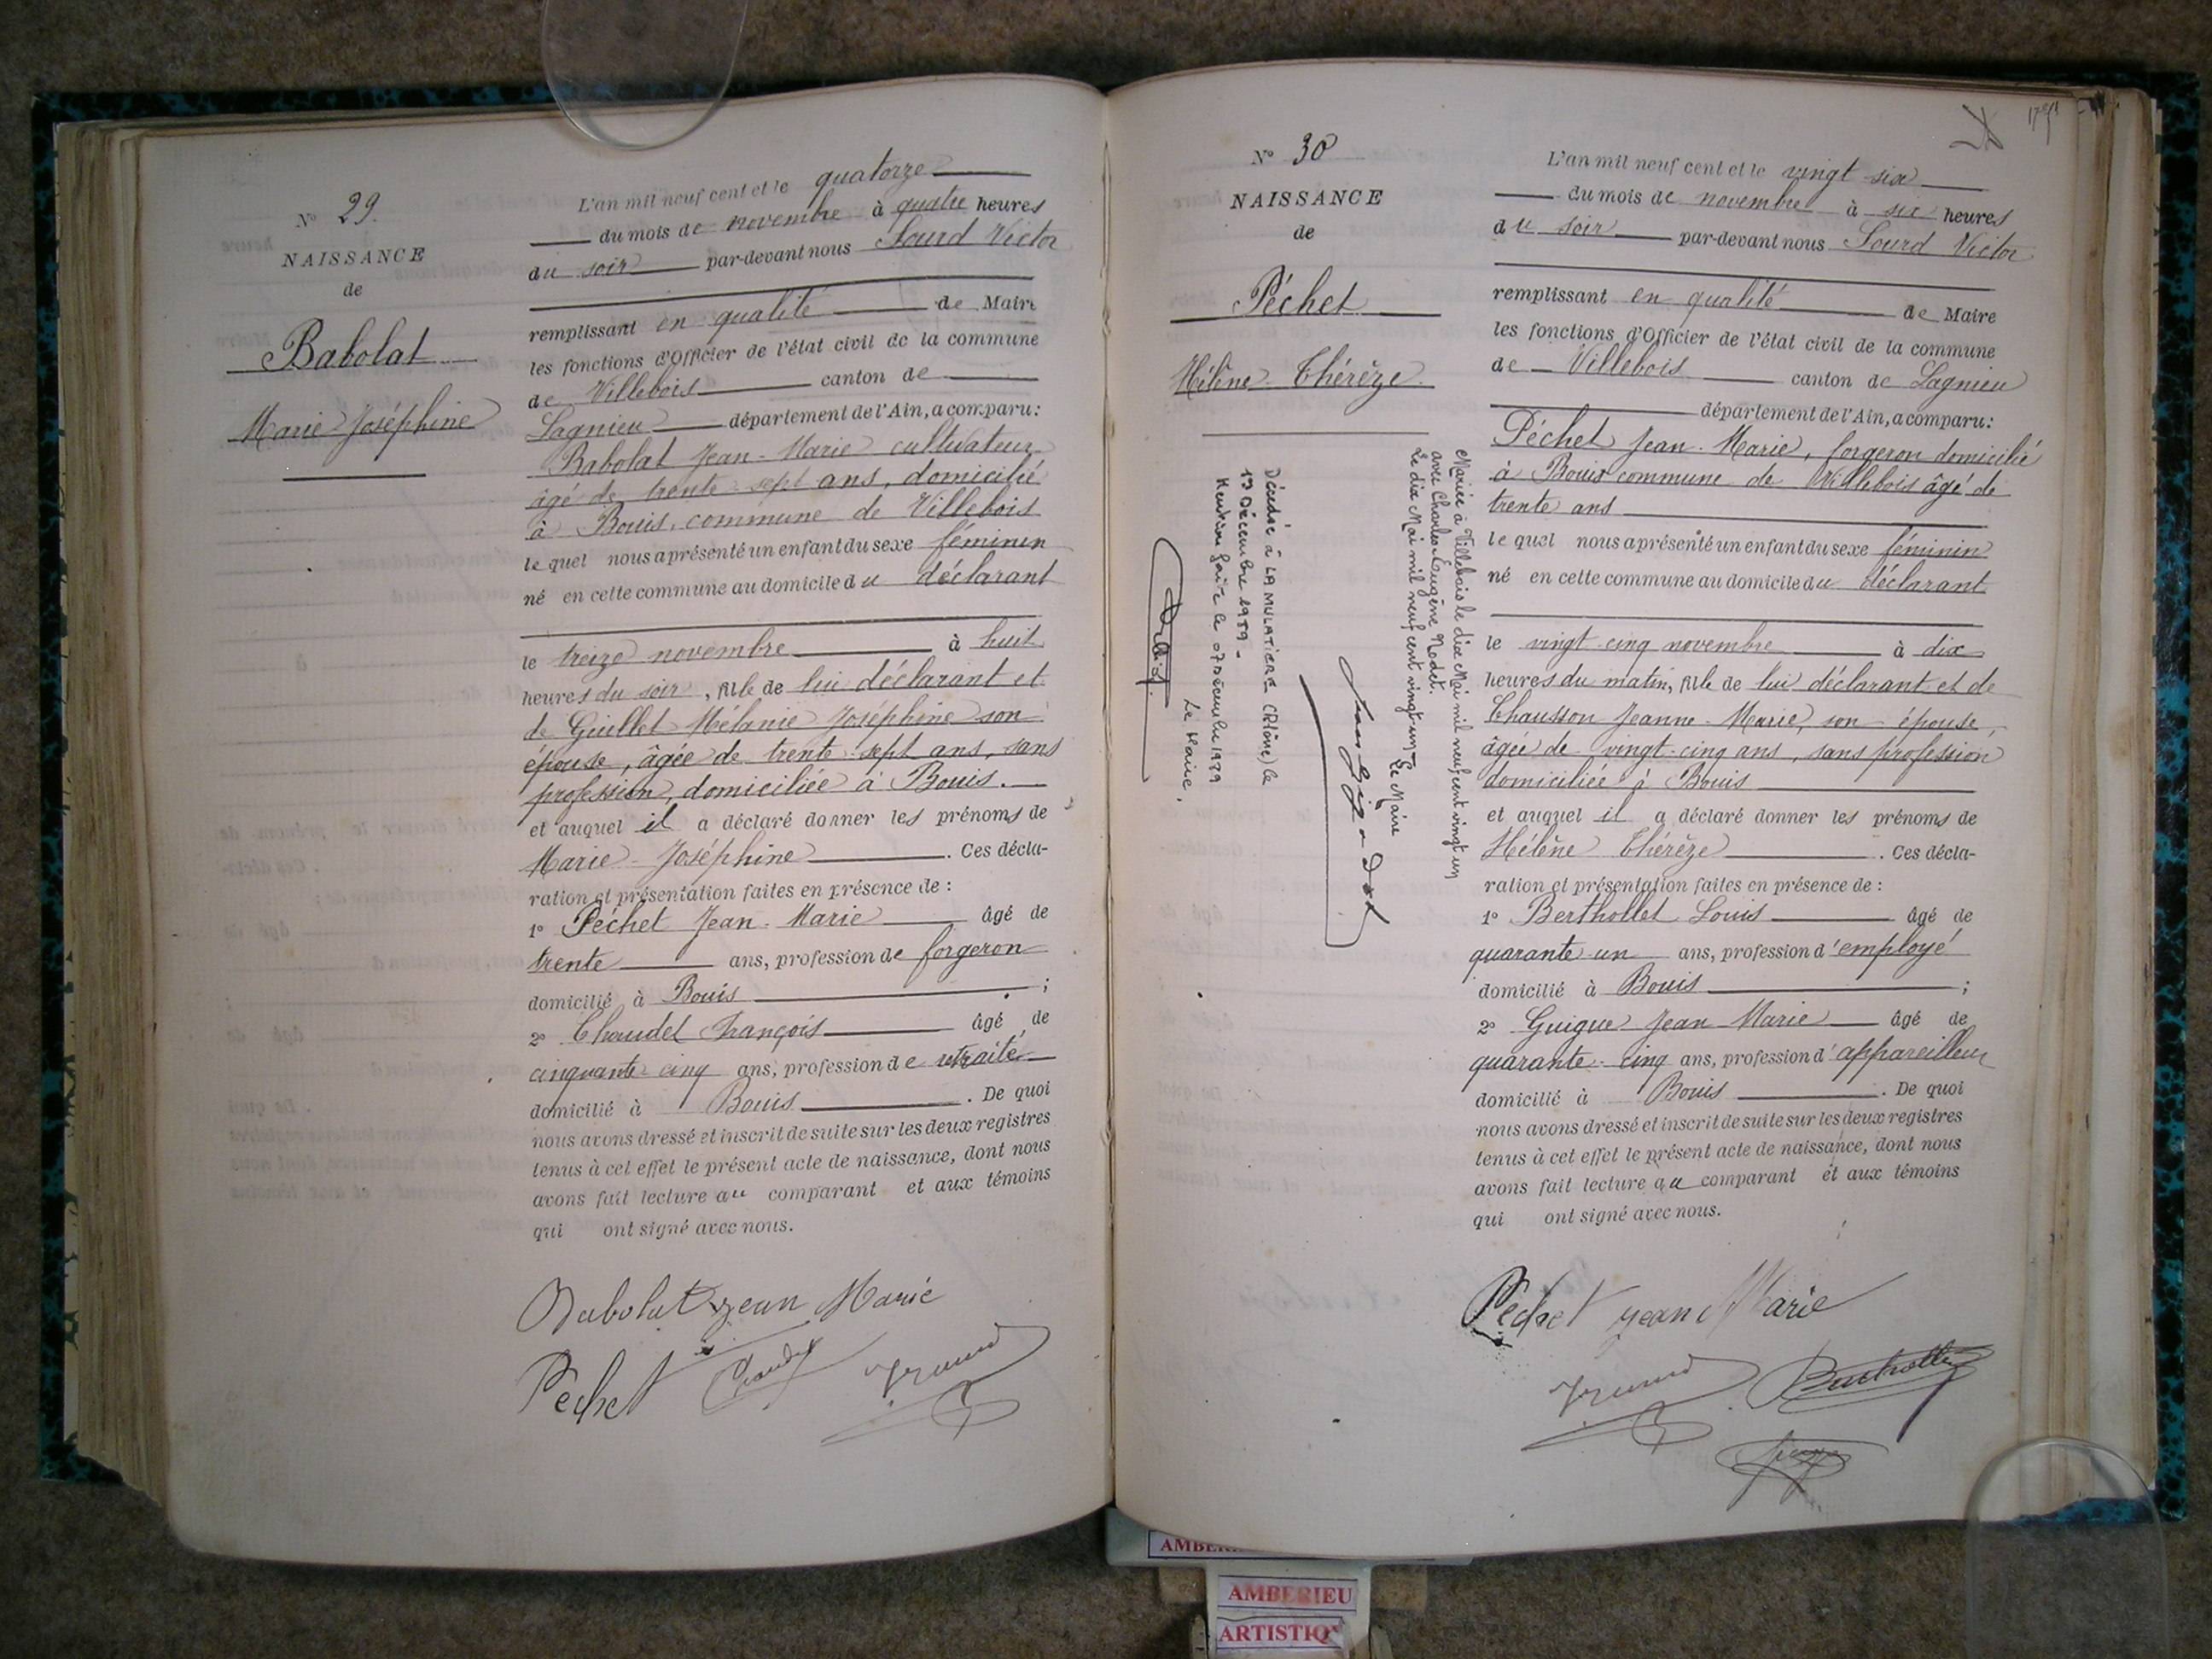 N° 29.
NAISSANCE
de
Babolat
Marie Joséphine
L'an mil neuf cent et le quatorze
du mois de novembre à quatre heures
du soir par-devant nous Sourd Victor
remplissant en qualité de Maire
les fonctions d'Officier de l'état civil de la commune
de Villebois canton de
Lagnieu département de l'Ain, a comparu:
Babolat Jean-Marie cultivateur
âgé de trente-sept ans, domicilié
à Bouis, commune de Villebois
lequel nous a présenté un enfant du sexe féminin
né en cette commune au domicile du déclarant
le treize novembre à huit
heures du soir, fille de lui déclarant et
de Guillet Mélanie Joséphine son
épouse, âgée de trente-sept ans, sans
profession, domiciliée à Bouis.
et auquel il a déclaré donner les prénoms de
Marie-Joséphine. Ces décla-
ration et présentation faites en présence de :
1° Péchet Jean-Marie âgé de
trente ans, profession de forgeron
domicilié à Bouis ;
2° Chaudet François âgé de
cinquante-cinq ans, profession de retraité
domicilié à Bouis. De quoi
nous avons dressé et inscrit de suite sur les deux registres
tenus à cet effet le présent acte de naissance, dont nous
avons fait lecture au comparant et aux témoins
qui ont signé avec nous.
Babolat jean Marie
Pechet
N° 30
NAISSANCE
de
Péchet
Hélène Thérèze
Mariée à Villebois le dix Mai mil neuf cent vingt un
avec Charles-Eugène Nodet.
Le dix Mai mil neuf cent vingt-un
Le Maire
Décédée à LA MULATIERE (Rhône) le
13 Décembre 1989
Mention faite le 27 Décembre 1989
Le Maire,
L'an mil neuf cent et le vingt-six
du mois de novembre à six heures
du soir par-devant nous Sourd Victor
remplissant en qualité de Maire
les fonctions d'Officier de l'état civil de la commune
de Villebois canton de Lagnieu
département de l'Ain, a comparu:
Péchet Jean-Marie, forgeron domicilié
à Bouis commune de Villebois âgé de
trente ans
lequel nous a présenté un enfant du sexe féminin
né en cette commune au domicile du déclarant
le vingt-cinq novembre à dix
heures du matin, fille de lui déclarant et de
Chausson Jeanne-Marie, son épouse,
âgée de vingt-cinq ans, sans profession,
domiciliée à Bouis
et auquel il a déclaré donner les prénoms de
Hélène Thérèze. Ces décla-
ration et présentation faites en présence de :
1° Berthollet Louis âgé de
quarante-un ans, profession d'employé
domicilié à Bouis ;
2° Guigue Jean-Marie âgé de
quarante-cinq ans, profession d'appareilleur
domicilié à Bouis. De quoi
nous avons dressé et inscrit de suite sur les deux registres
tenus à cet effet le présent acte de naissance, dont nous
avons fait lecture au comparant et aux témoins
qui ont signé avec nous.
Péchet jean Marie
AMBERIEU
ARTISTIQ